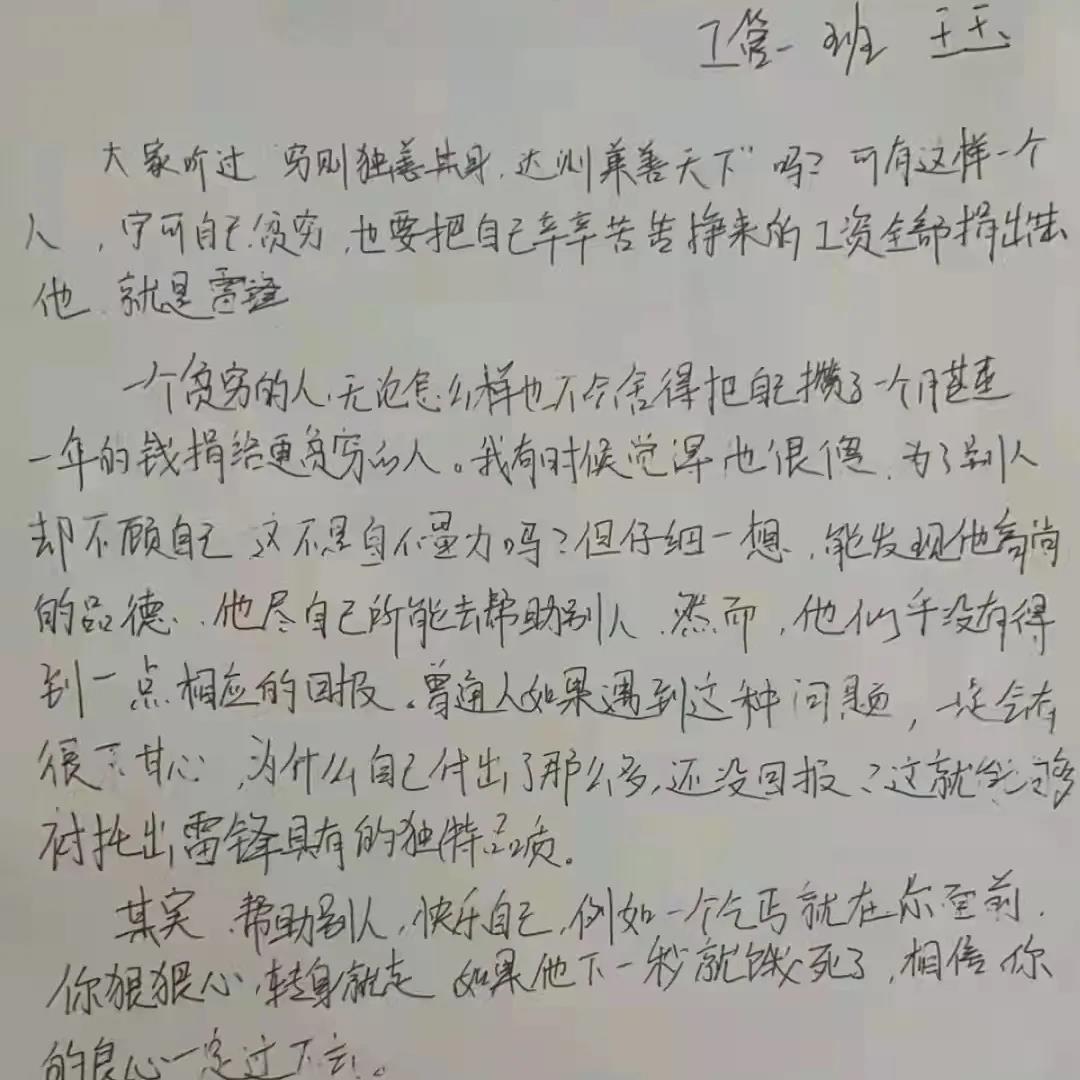 工管一班 王玉
大家听过“穷则独善其身，达则兼善天下”吗？可有这样一个
人，宁可自己贫穷，也要把自己辛辛苦苦挣来的工资全部捐出去
他，就是雷锋
一个贫穷的人，无论怎么样也不会舍得把自己攒了一个月甚至
一年的钱捐给更贫穷的人。我有时候觉得他很傻，为了别人
却不顾自己，这不是自不量力吗？但仔细一想，能发现他高尚
的品德，他尽自己所能去帮助别人，然而，他们乎没有得
到一点相应的回报。曾通人如果遇到这种问题，一定会有
很不甘心，为什么自己付出了那么多，还没回报？这就能够
衬托出雷锋具有的独特品质。
其实，帮助别人，快乐自己，例如一个乞丐就在你面前，
你狠狠心，转身就走，如果他下一秒就饿死了，相信你
的良心一定过不去。